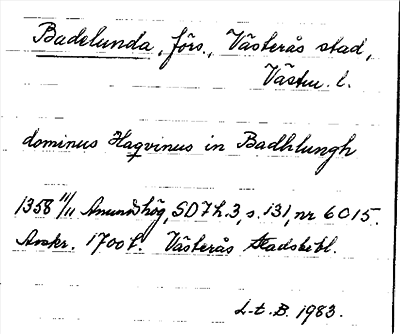 Badelunda, förs., Västerås stad,
Västm. l.
dominus Haqvinus in Badhlungh
1358 11/11 Anundshög, SD 7 h. 3, s. 131, nr 6015.
Avskr. 1700 t. Västerås Stadsbibl.
L-t. B. 1983.